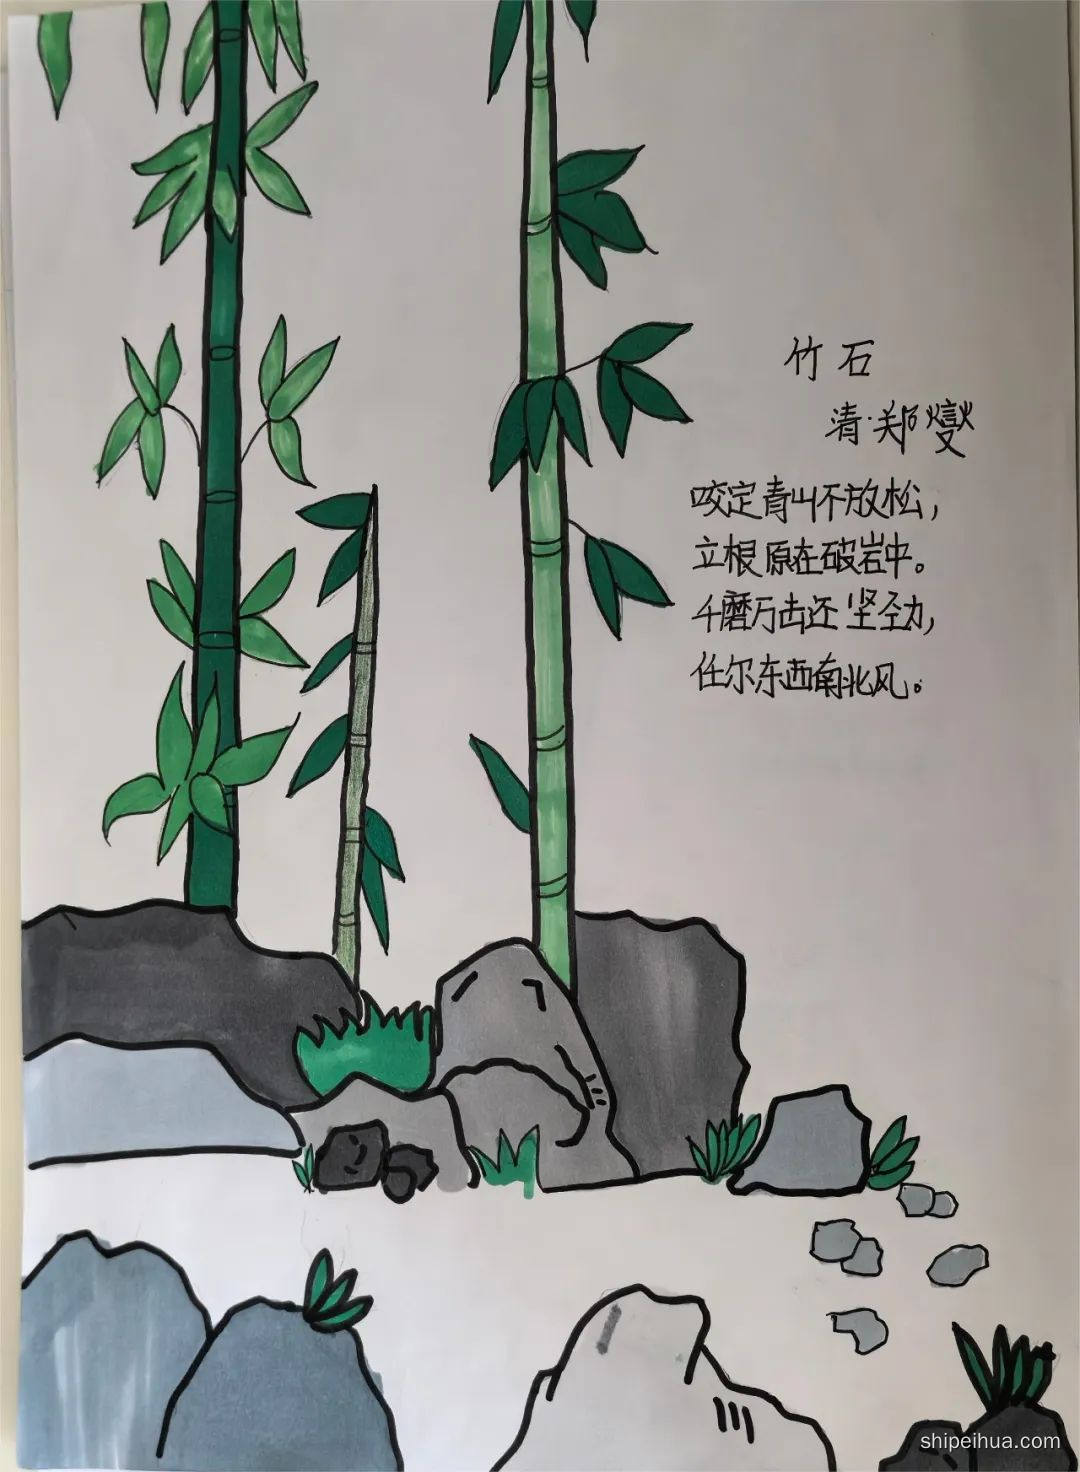 竹石
清·郑燮
咬定青山不放松，
立根原在破岩中。
千磨万击还坚劲，
任尔东西南北风。
shipeihua.com